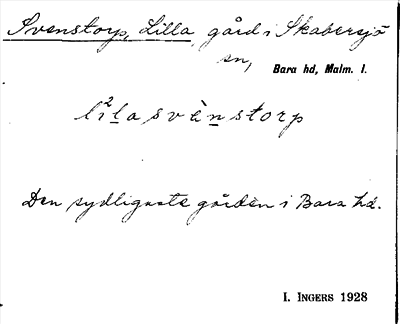 Svenstorp, Lilla, gård i Skabersjö
sn, Bara hd, Malm. l.
li²lasvènstorp
Den sydligaste gården i Bara hd.
I. INGERS 1928